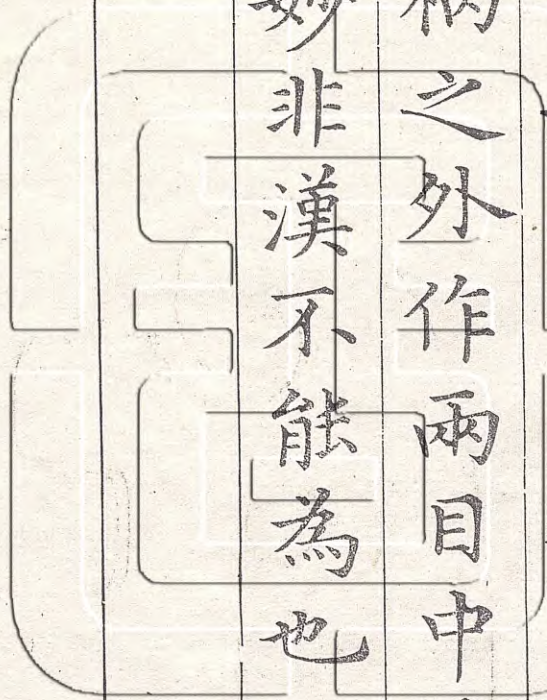 柄之外作兩目中
妙非漢不能為也